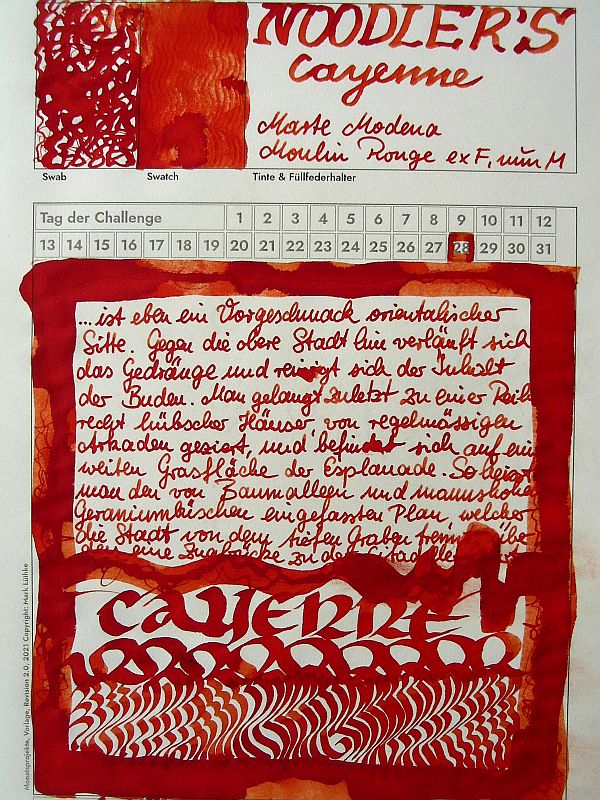 NOODLER'S
Cayenne
Maste Modena
Moulin Rouge ex F, nun M
Swab Swatch Tinte & Füllfederhalter
Tag der Challenge 1 2 3 4 5 6 7 8 9 10 11 12
13 14 15 16 17 18 19 20 21 22 23 24 25 26 27 28 29 30 31
...ist eben ein Vorgeschmack orientalischer
Sitte. Gegen die obere Stadt hin verläuft sich
das Gedränge und reinigt sich der Inhalt
der Buden. Man gelangt zuletzt zu einer Reihe
recht hübscher Häuser von regelmässigen
Arkaden geziert, und befindet sich auf ein
weiten Grasfläche der Esplanade. So heisst
man den von Baumalleen und mannshohen
Geraniumbüschen eingefassten Plan, welcher
die Stadt von dem tiefen Graben trennt, über
den eine Zugbrücke zu der Citadelle
CAYENNE
Monatsprojekte, Vorlage, Revision 2.0, 2021 Copyright: Mark Lülhke